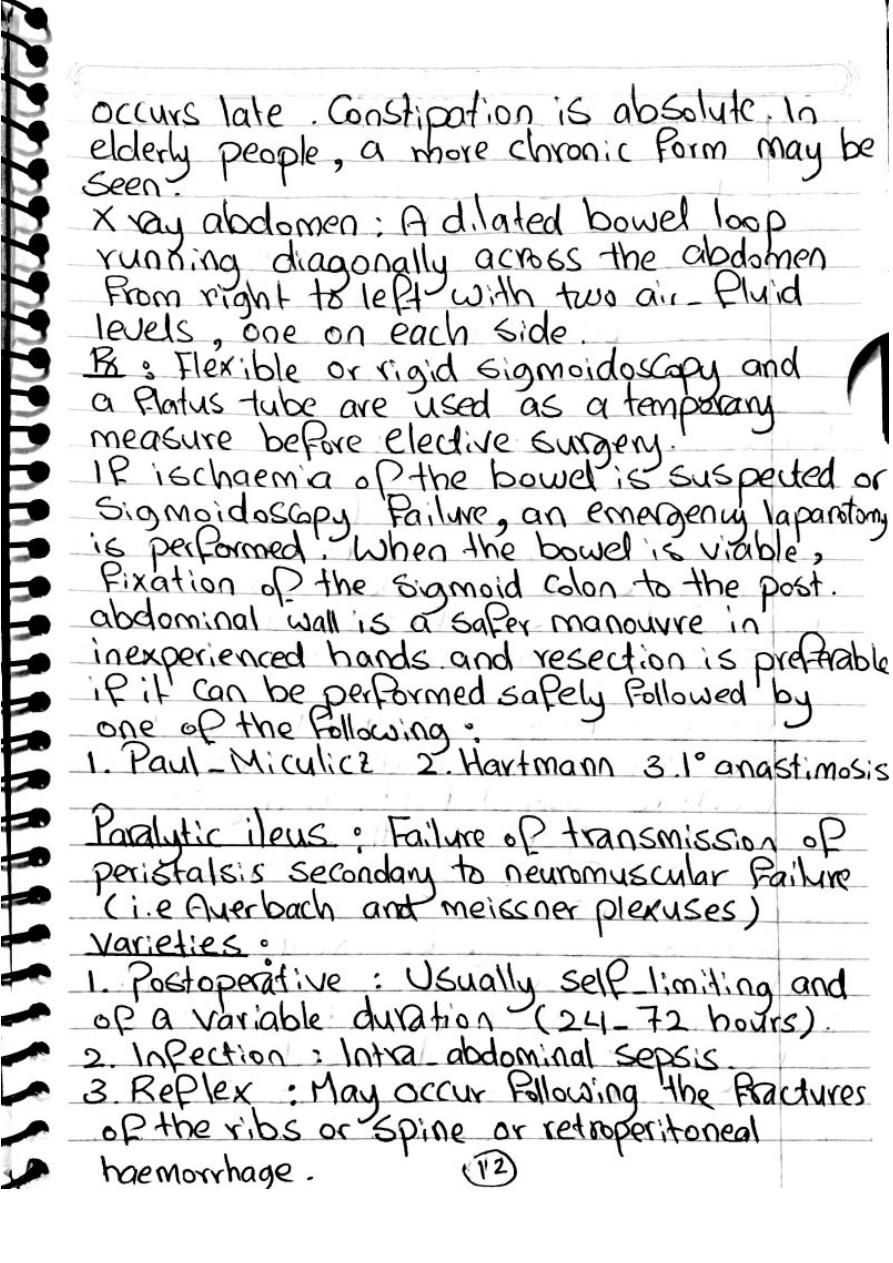 occurs late. Constipation is absolute. In
elderly people, a more chronic form may be
seen.
X ray abdomen: A dilated bowel loop
running diagonally across the abdomen
from right to left with two air-fluid
levels, one on each side.
Rx: Flexible or rigid sigmoidoscopy and
a flatus tube are used as a temporary
measure before elective surgery.
If ischaemia of the bowel is suspected or
Sigmoidoscopy failure, an emergency laparotomy
is performed. When the bowel is viable,
fixation of the sigmoid colon to the post.
abdominal wall is a safer manouvre in
inexperienced hands and resection is preferable
if it can be performed safely followed by
one of the following:
1. Paul-Miculicz 2. Hartmann 3. 1° anastimosis
Paralytic ileus: Failure of transmission of
peristalsis secondary to neuromuscular failure
(i.e Auerbach and meissner plexuses)
Varieties:
1. Postoperative: Usually self-limiting and
of a variable duration (24-72 hours).
2. Infection: Intra-abdominal sepsis.
3. Reflex: May occur following the fractures
of the ribs or spine or retroperitoneal
haemorrhage.
12